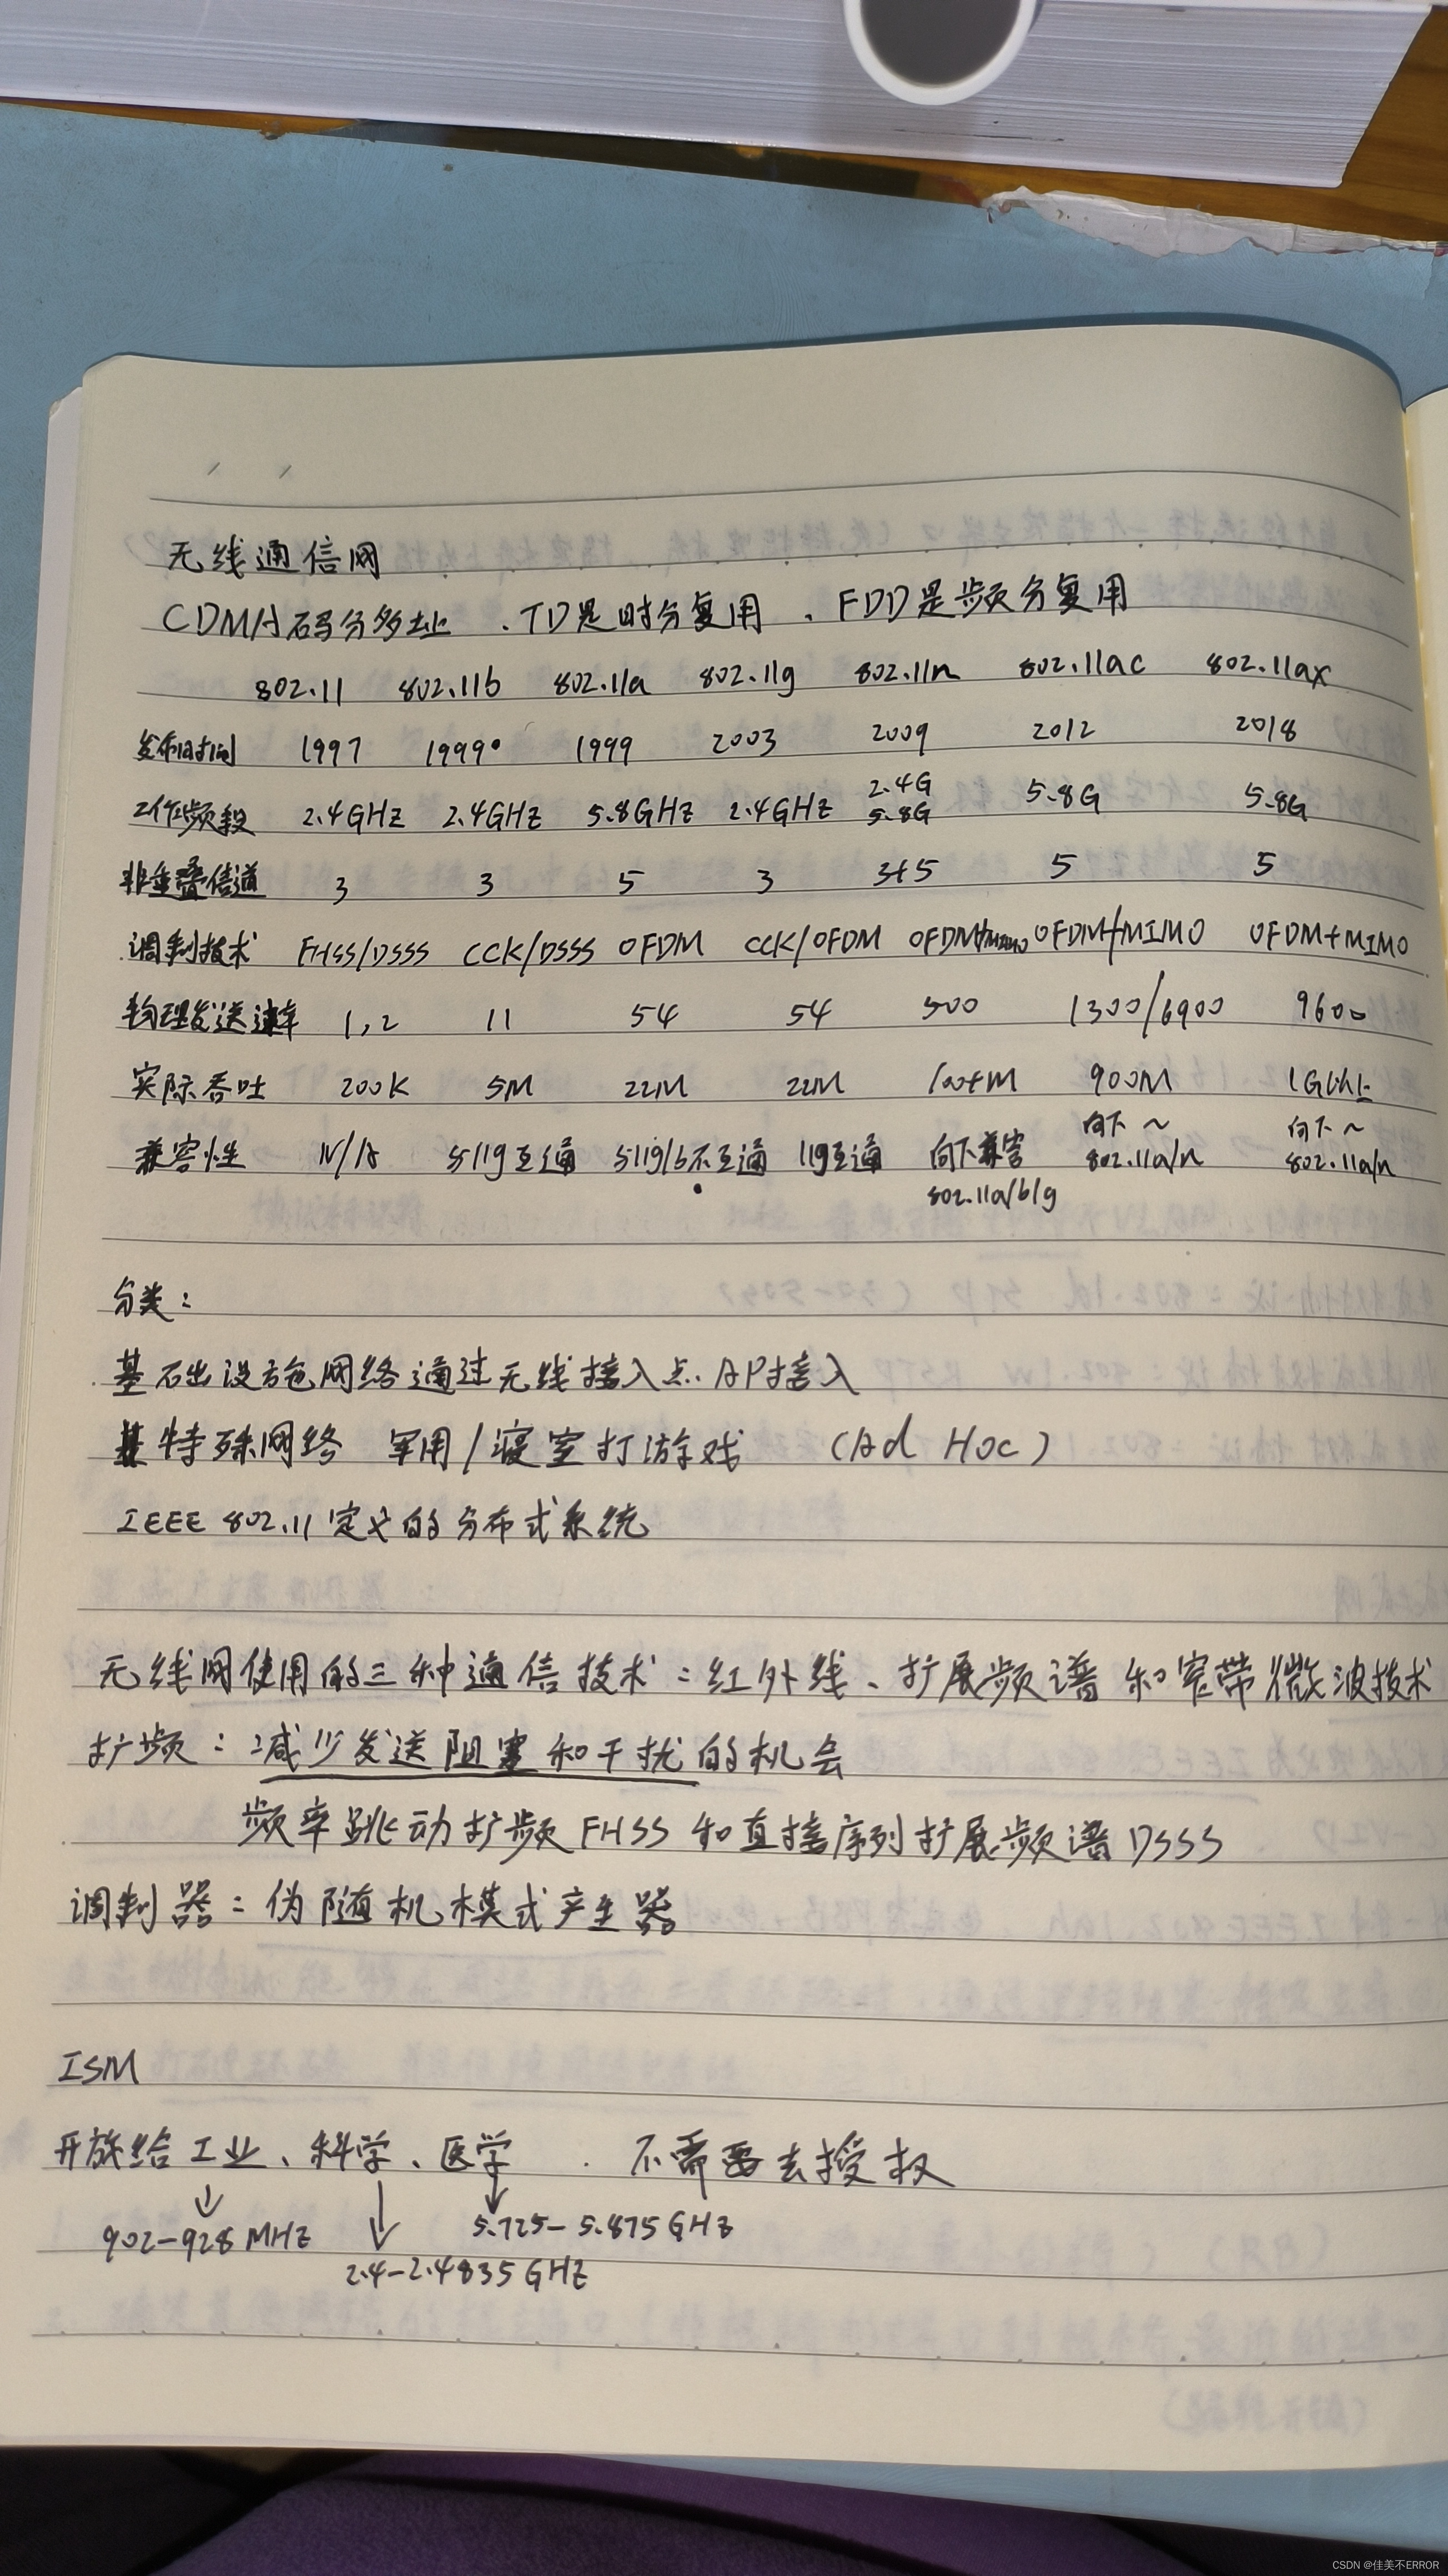 无线通信网
CDMA码分多址 .TD是时分复用 、FDD是频分复用
802.11 802.11b 802.11a 802.11g 802.11n 802.11ac 802.11ax
发布时间 1997 1999 1999 2003 2009 2012 2018
工作频段 2.4GHz 2.4GHz 5.8GHz 2.4GHz 2.4G 5.8G 5.8G 5.8G
非重叠信道 3 3 5 3 3+5 5 5
调制技术 FHSS/DSSS CCK/DSSS OFDM CCK/OFDM OFDM+MIMO OFDM+MIMO OFDM+MIMO
物理发送速率 1,2 11 54 54 500 1300/6900 9600
实际吞吐 200K 5M 22M 22M 100+M 900M 1G以上
兼容性 N/A 与11g互通 与11g/b不互通 11g互通 向下兼容 802.11a/b/g 向下~ 802.11a/n 向下~ 802.11a/n
分类:
基础设施网络通过无线接入点AP接入
特殊网络 军用/寝室打游戏 (Ad Hoc)
IEEE 802.11定义的分布式系统
无线网使用的三种通信技术:红外线、扩展频谱和窄带微波技术
扩频:减少发送阻塞和干扰的机会
频率跳动扩频FHSS和直接序列扩展频谱DSSS
调制器:伪随机模式产生器
ISM
开放给工业、科学、医学 . 不需要去授权
902-928MHz 5.725-5.875GHz
2.4-2.4835GHz
CSDN @佳美不ERROR